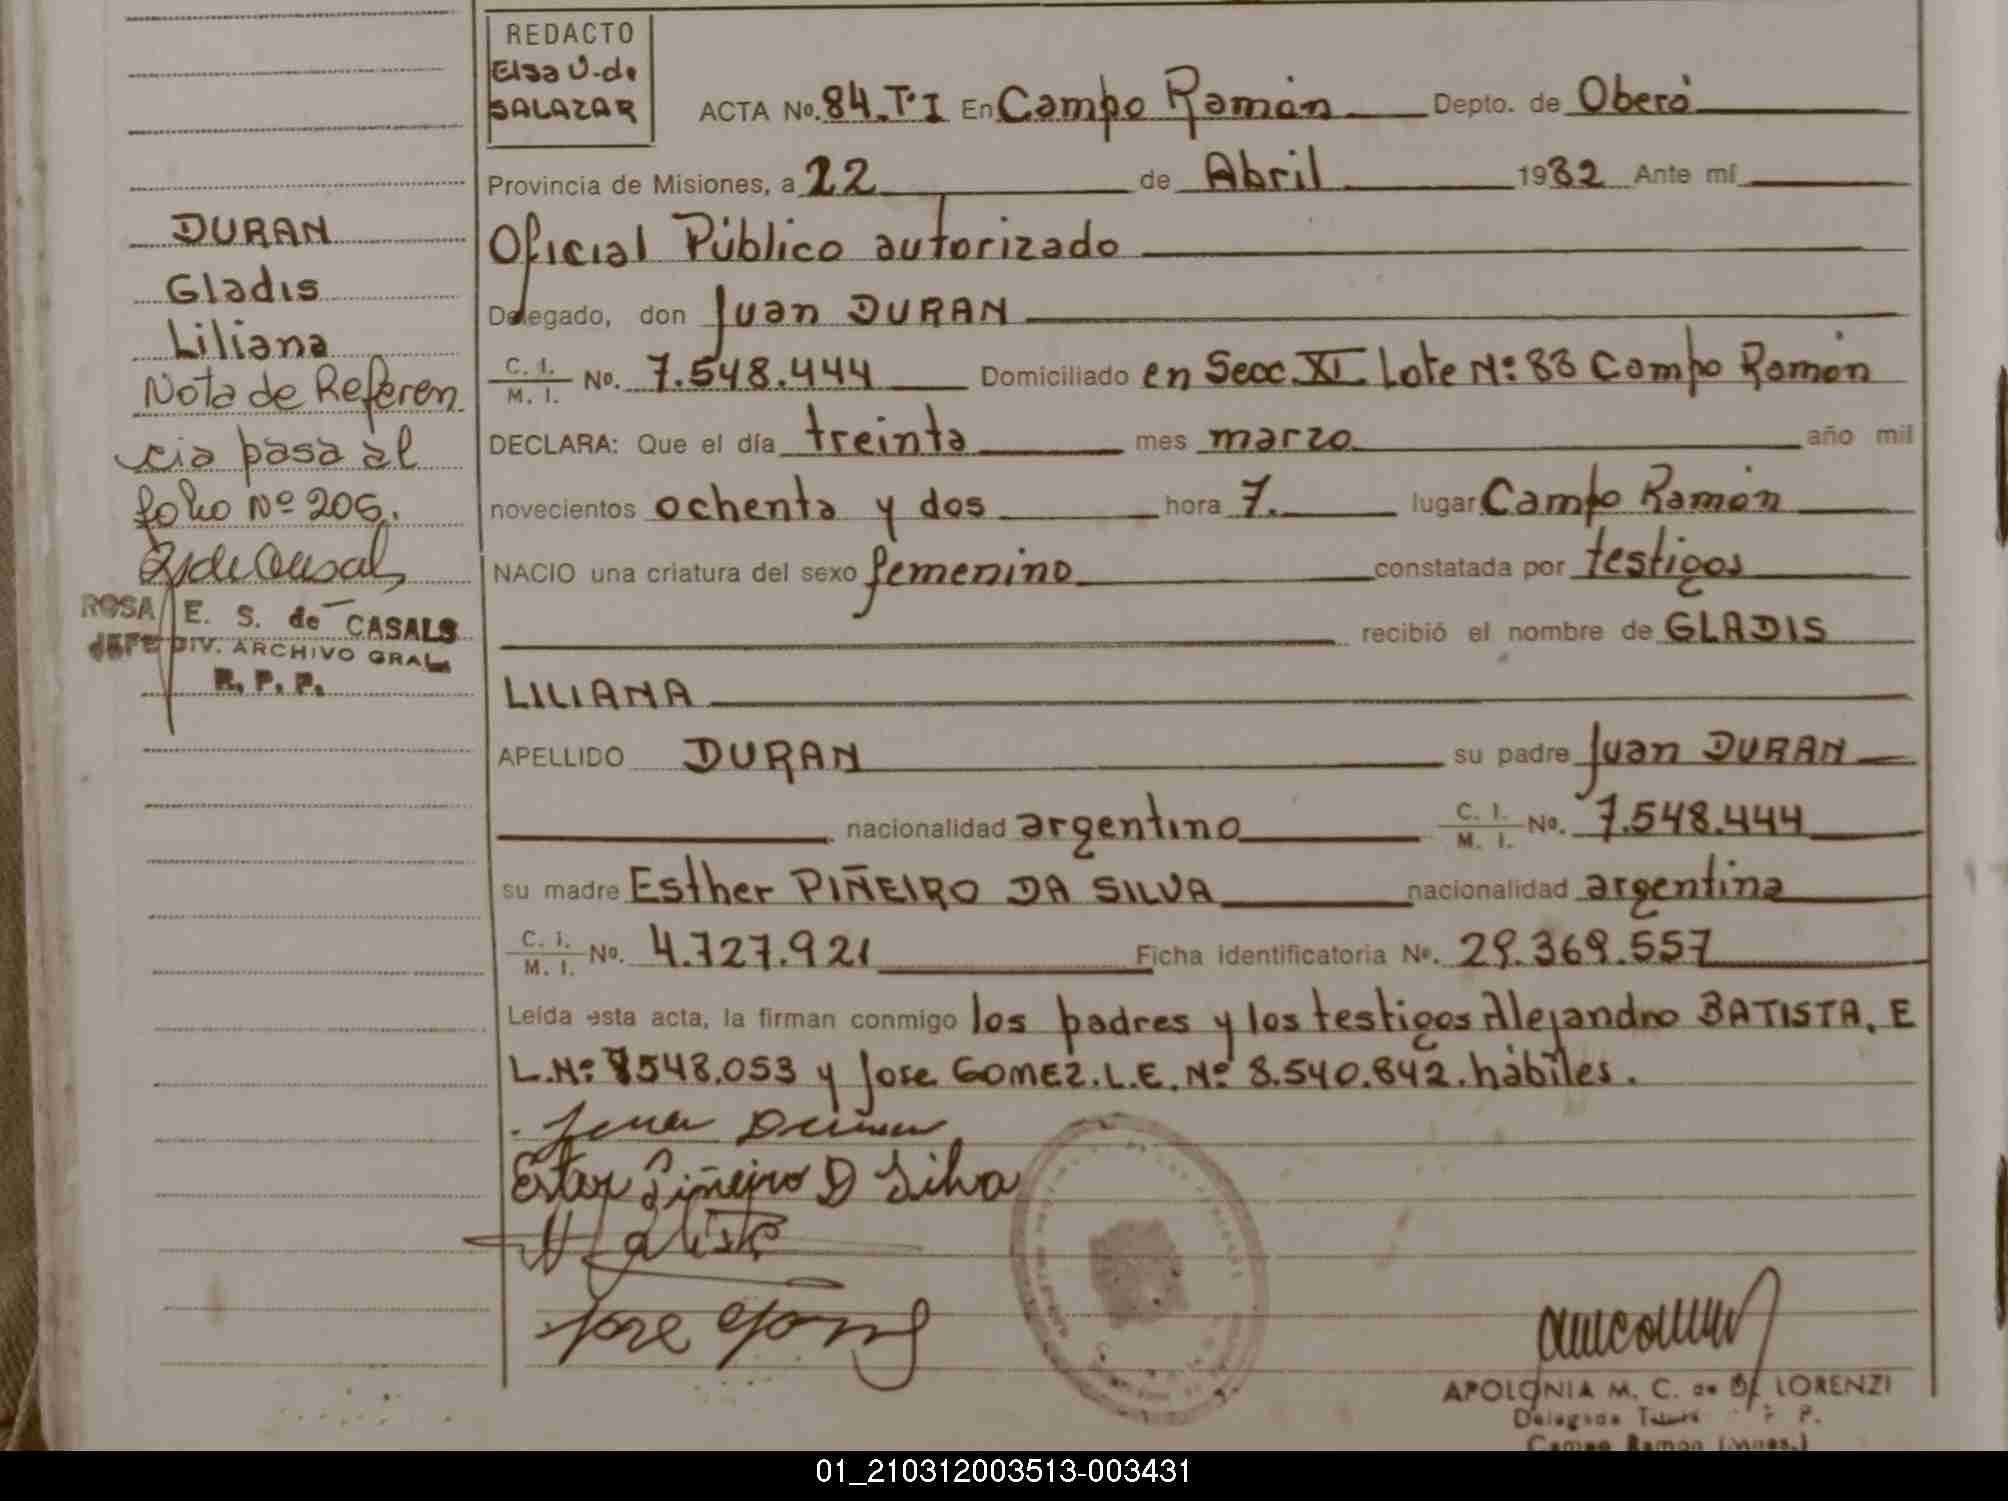 REDACTO
Elsa U. de
SALAZAR
ACTA No. 84. Tº I En Campo Ramón Depto. de Oberá
Provincia de Misiones, a 22 de Abril 1982 Ante mí
Oficial Público autorizado
Delegado, don Juan DURAN
C. I. M. I. No. 7.548.444 Domiciliado en Secc. XI Lote Nº: 83 Campo Ramón
DECLARA: Que el día treinta mes marzo año mil
novecientos ochenta y dos hora 7. lugar Campo Ramón
NACIO una criatura del sexo femenino constatada por testigos
recibió el nombre de GLADIS
LILIANA
APELLIDO DURAN su padre Juan DURAN
nacionalidad argentino C. I. M. I. No. 7.548.444
su madre Esther PIÑEIRO DA SILVA nacionalidad argentina
C. I. M. I. No. 4.727.921 Ficha identificatoria No. 29.369.557
Leída esta acta, la firman conmigo los padres y los testigos Alejandro BATISTA. E
L. Nº: 7548.053 y Jose GOMEZ. L.E. Nº 8.540.842. hábiles.
Juan Duran
Ester Piñeiro D Silva
Jose Gómez
APOLONIA M. C. de D. LORENZI
Delegada
Campo Ramon (Mnes.)
DURAN
Gladis
Liliana
Nota de Referen
cia pasa al
folio Nº 206.
ROSA E. S. de CASALS
JEFE DIV. ARCHIVO GRAL
R. P. P.
01_210312003513-003431